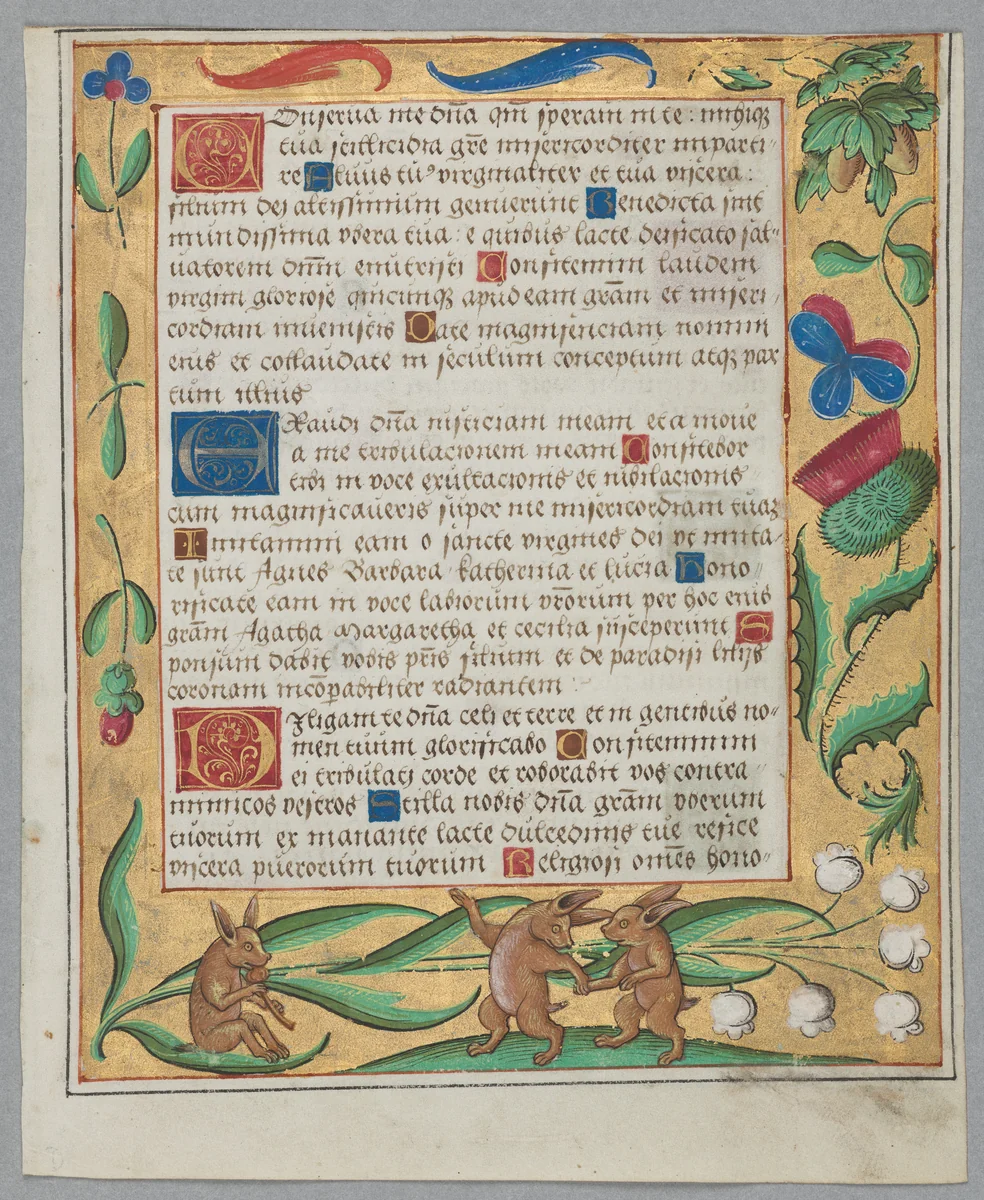 Conserua me dña qm̃ speraui in te : mihiq̃
tua stillicidia grẽ misericorditer imparti-
re Aluus tu⁹ virginaliter et tua viscera :
filium dei altissimum genuerunt Benedicta sint
mundissima vbera tua : e quibus lacte deificato sal-
uatorem dñm enutristi Confitemini laudem
virgini gloriose quicunq̃ apud eam grãm et miseri-
cordiam inuenistis Date magnificenciam nomini
eius et collaudate in seculum conceptum atq̃ par
tum illius
Exaudi dña iusticiam meam et a moue
a me tribulacionem meam Confitebor
tibi in voce exultacionis et iubilacionis
cum magnificaueris super me misericordiam tuaʒ
Imitamini eam o sancte virgines dei vt imita-
te sunt Agnes Barbara Katherina et lucia Hono-
rificate eam in voce labiorum vr̃orum per hoc enis
grãm Agatha Margaretha et cecilia susceperunt S
ponsum dabit vobis pr̃is filium et de paradisi lilijs
coronam incõpabiliter radiantem :
Diligam te dña celi et terre et in gentibus no-
men tuum glorificabo Confitemini
ei tribulati corde et roborabit vos contra
inimicos vestros Stilla nobis dña grãm vberum
tuorum ex manante lacte dulcedinis tue refice
viscera puerorum tuorum Religiosi omẽs hono-